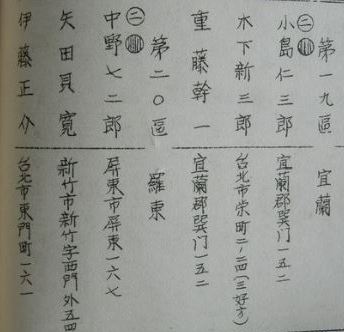 第一九區 宜蘭
㊁㊌ 小島仁三郎 宜蘭郡巽門一五二
木下新三郎 台北市栄町二ノ二四(三好方)
重藤幹一 宜蘭郡巽门一五二
第二〇區 羅東
㊁ 中野七二郎 屏東市屏東一六七
矢田貝寛 新竹市新竹字西門外五四
伊藤正介 台北市東門町一六一